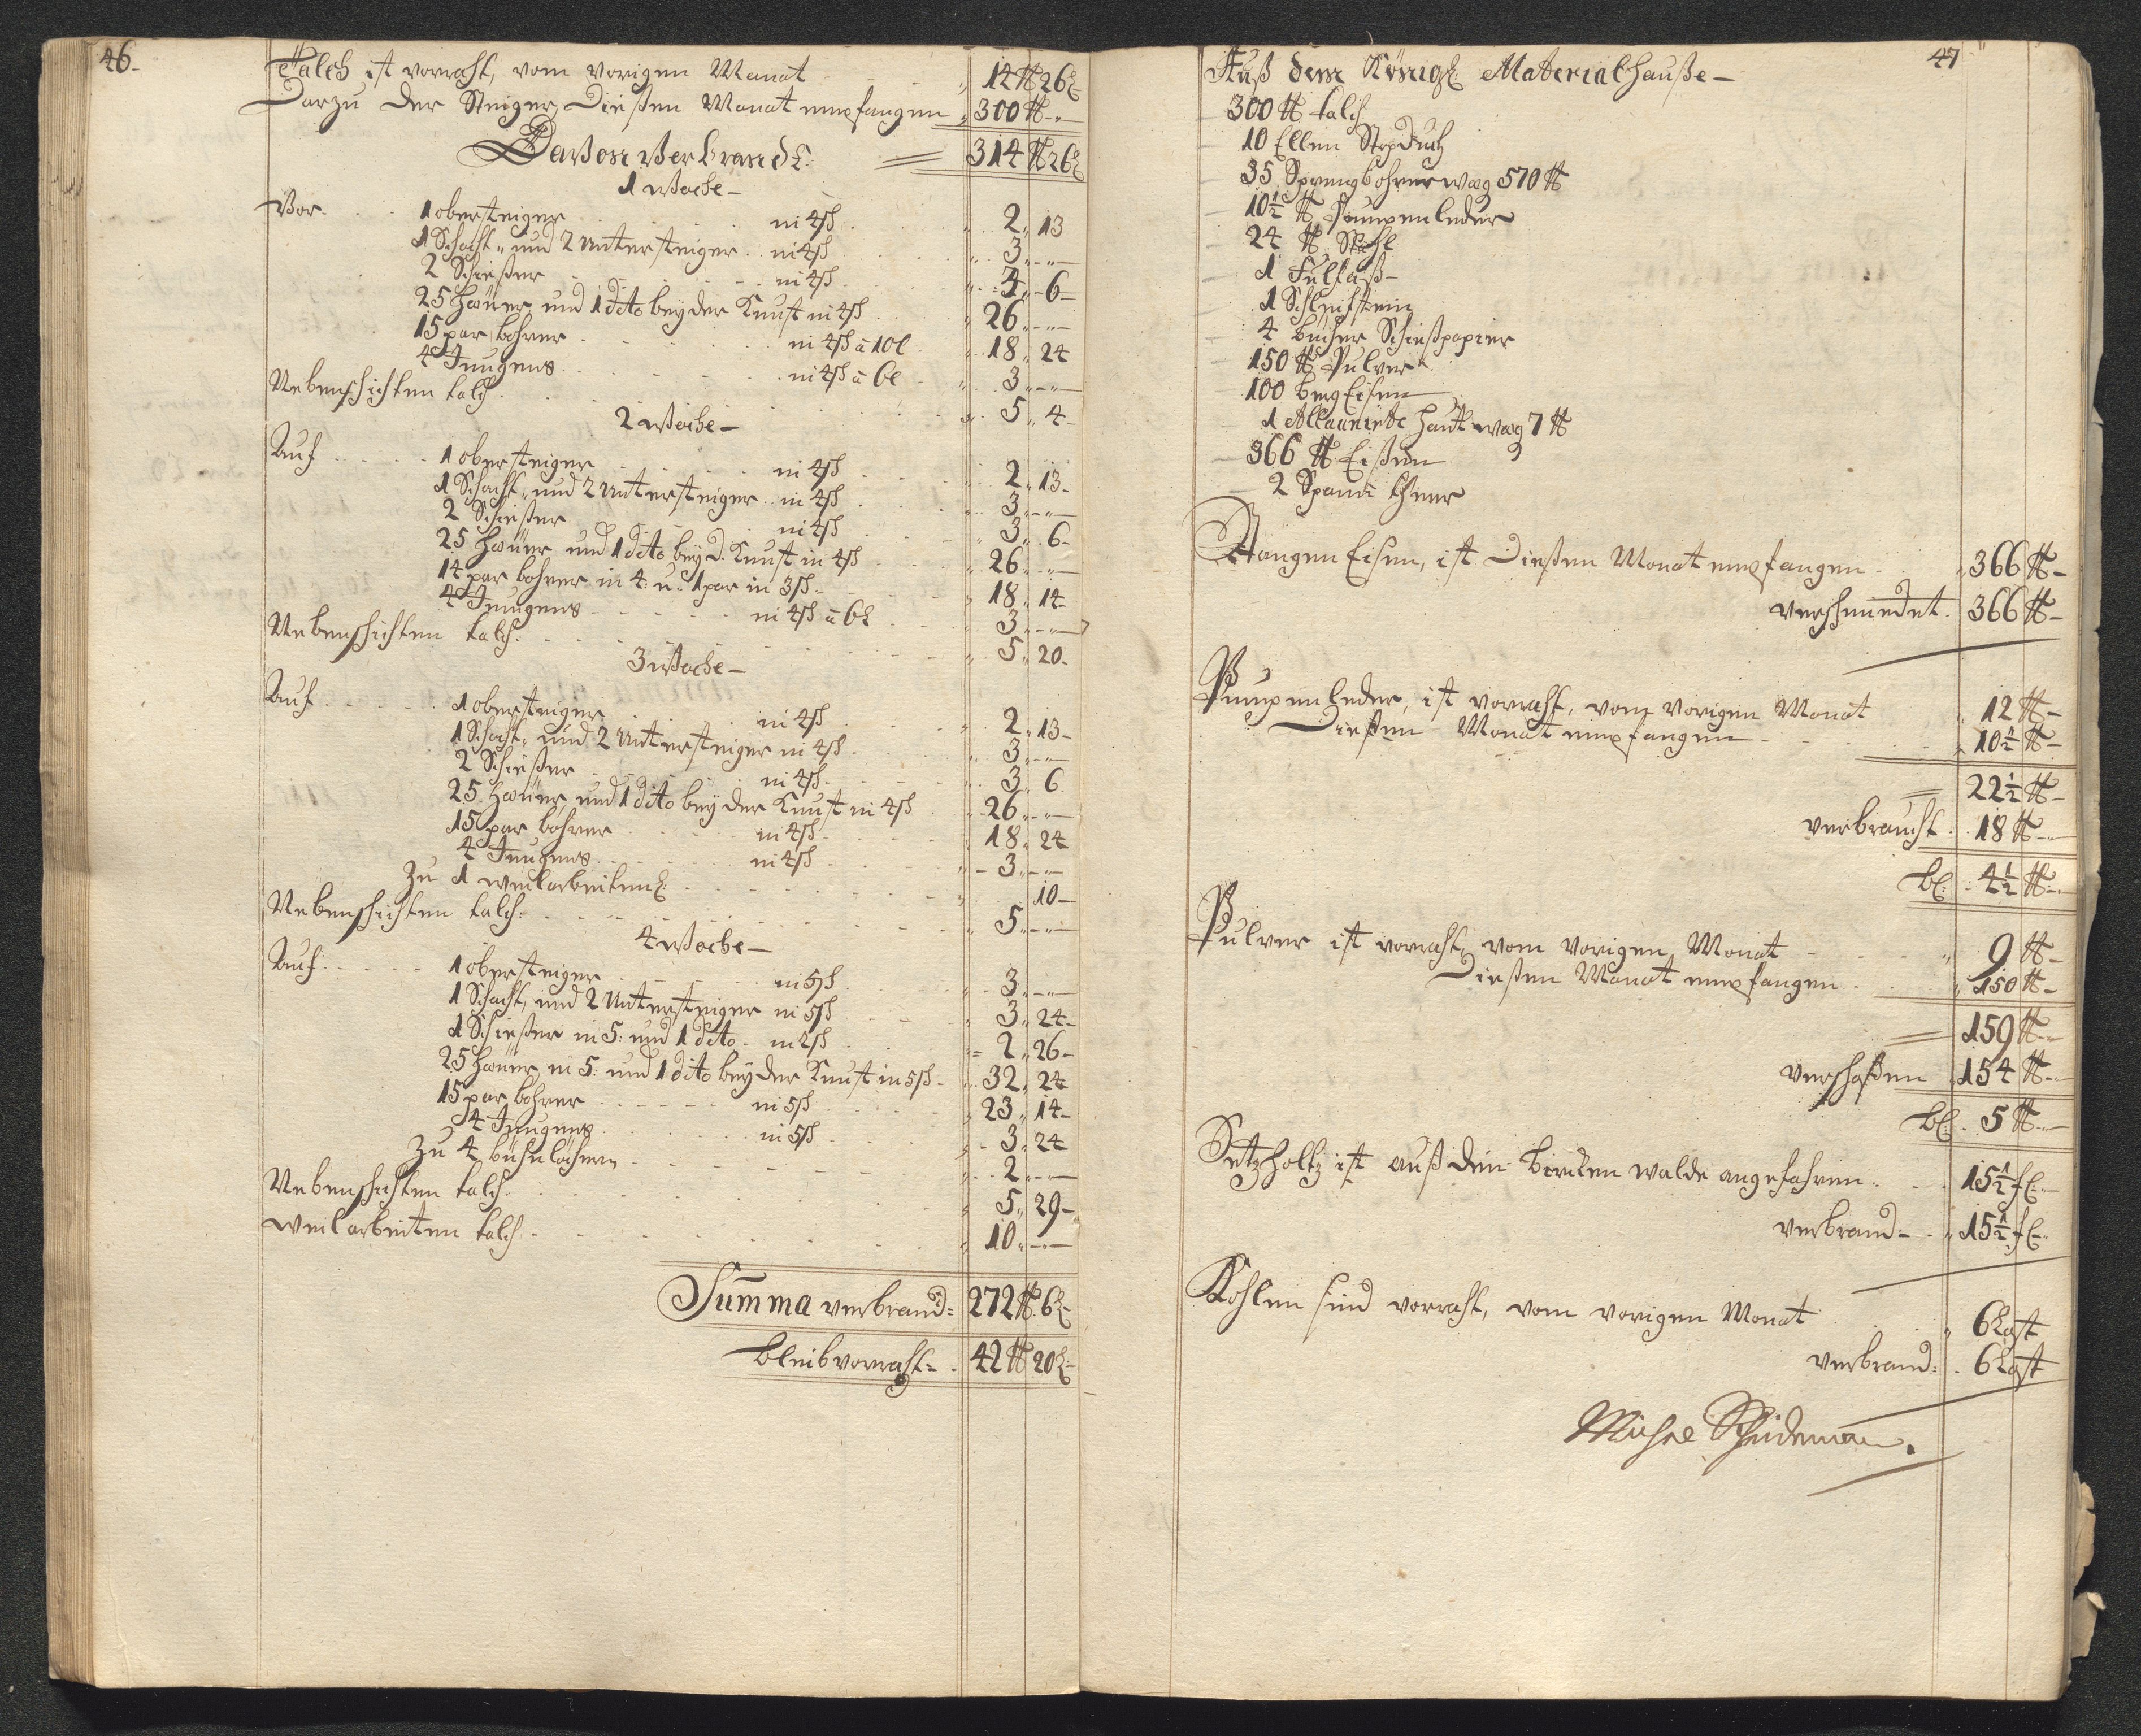 46.
Talch ist vorraht, vom vorigen Monat 14 ℔ 26 L
Darzu der Steiger, Dießen Monat empfangen 300 ℔ -"-
Davon Verbrandt. 314 ℔ 26 L
1 Woche-
Vor. 1 obersteiger in 4 ß 2 " 13
1 Schacht- und 2 Untersteiger in 4 ß 3 " -"-
2 Schießer in 4 ß 3 " 6-
25 Hauer, und 1 dito bey der Kunst in 4 ß 26 " -"-
15 par bohrer in 4 ß a 10 l 18 " 24
4 Jungens in 4 ß a 6 l 3 " -"-
Nebenschichten talch 5 " 4-
2 Woche-
Auf 1 obersteiger in 4 ß 2 " 13-
1 Schacht- und 2 Untersteiger in 4 ß 3 " -"-
2 Schießer in 4 ß 3 " 6-
25 Hauer und 1 dito bey d. Kunst in 4 ß 26 " -"-
14 par bohrer in 4 u. 1 par in 3 ß 18 " 14-
4 Jungens in 4 ß a 6 L 3 " -"-
Nebenschichten talch 5 " 20-
3 Woche-
Auf 1 obersteiger in 4 ß 2 " 13-
1 Schacht- und 2 Untersteiger in 4 ß 3 " -"-
2 Schießer in 4 ß 3 " 6
25 Hauer, und 1 dito bey der Kunst in 4 ß 26 " -"-
15 par bohrer in 4 ß 18 " 24
4 Jungens in 4 ß 3 " -"-
Zu 1 weilarbeiten 10-
Nebenschichten talch 5 " -"-
4 Woche-
Auf 1 obersteiger in 5 ß 3 " -"-
1 Schacht, und 2 Untersteiger in 5 ß 3 " 24-
1 Schießer in 5: und 1 dito in 2 ß 2 " 26-
25 Hauer in 5: und 1 dito bey der Kunst in 5 ß 32 " 24
15 par bohrer in 5 ß 23 " 14-
4 Jungens in 5 ß 3 " 24
Zu 4 2 " -"-
Nebenschichten talch 5 " 29-
Weilarbeiten talch 10 " -"-
Summa verbrand= 272 ℔ 6 L
bleib vorraht= 42 ℔ 20 L
47
Auß dem Königl: Materialhauße-
300 ℔ talch
10 Ellen
35 Sprengbohrer wog 570 ℔
10 1/2 ℔ Pumpenleder
24 ℔ Stahl
1 Fulfaß-
1 Schleifstein
4 bucher Schießpapier
150 ℔ Pulver
100 berg Eisen
1 Allaunirte Haut wog 7 ℔
366 ℔ Eißen
2 Spand theer
Stangen Eisen, ist Dießen Monat empfangen 366 ℔ -
verschmiedet 366 ℔ -
Pumpenleder, ist vorraht, vom vorigen Monat 12 ℔ -
Dießen Monat empfangen 10 1/2 ℔ -
22 1/2 ℔ -
verbraucht 18 ℔ -
bl: 4 1/2 ℔ -
Pulver ist vorraht, vom vorigen Monat 9 ℔ -
Dießen Monat empfangen 150 ℔ -
159 ℔ -
verschoßen 154 ℔ -
bl: 5 ℔ -
Setzholtz ist auß dem bircken walde angefahren 15 1/2 fl:
verbrand- 15 1/2 fl:
Kohlen sind vorraht, vom vorigen Monat 6 Last
verbrand= 6 Last
Michel Scheideman.